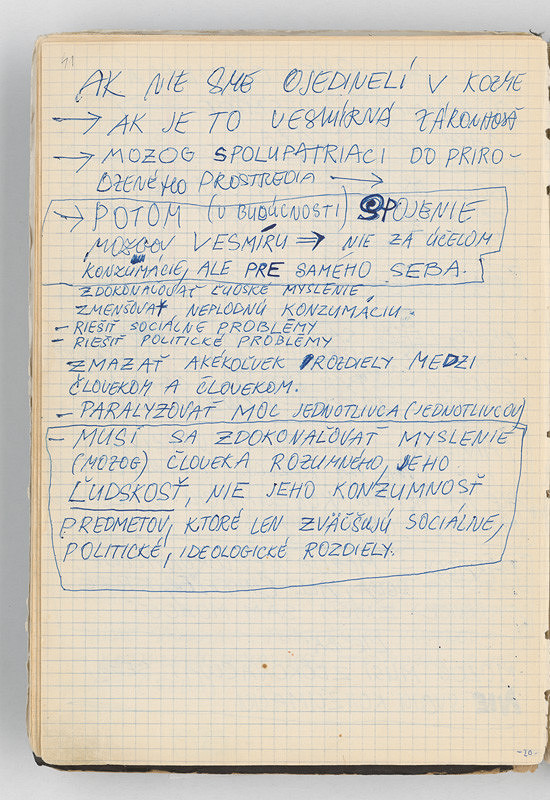 11
AK NIE SME OJEDINELÍ V KOZME
→ AK JE TO VESMÍRNÁ ZÁKONITOSŤ
→ MOZOG SPOLUPATRIACI DO PRIRO-
DZENÉHO PROSTREDIA →
→ POTOM (V BUDÚCNOSTI) SPOJENIE
MOZGOV VESMÍRU ⇒ NIE ZA ÚČELOM
KONZUMÁCIE, ALE PRE SAMÉHO SEBA.
ZDOKONAĽOVAŤ ĽUDSKÉ MYSLENIE
ZMENŠOVAŤ NEPLODNÚ KONZUMÁCIU.
- RIEŠIŤ SOCIÁLNE PROBLÉMY
- RIEŠIŤ POLITICKÉ PROBLÉMY
ZMAZAŤ AKÉKOĽVEK ROZDIELY MEDZI
ČLOVEKOM A ČLOVEKOM.
- PARALYZOVAŤ MOC JEDNOTLIVCA (JEDNOTLIVCOV)
- MUSÍ SA ZDOKONAĽOVAŤ MYSLENIE
(MOZOG) ČLOVEKA ROZUMNÉHO, JEHO
ĽUDSKOSŤ, NIE JEHO KONZUMNOSŤ
PREDMETOV, KTORÉ LEN ZVÄČŠUJÚ SOCIÁLNE,
POLITICKÉ, IDEOLOGICKÉ ROZDIELY.
-20-